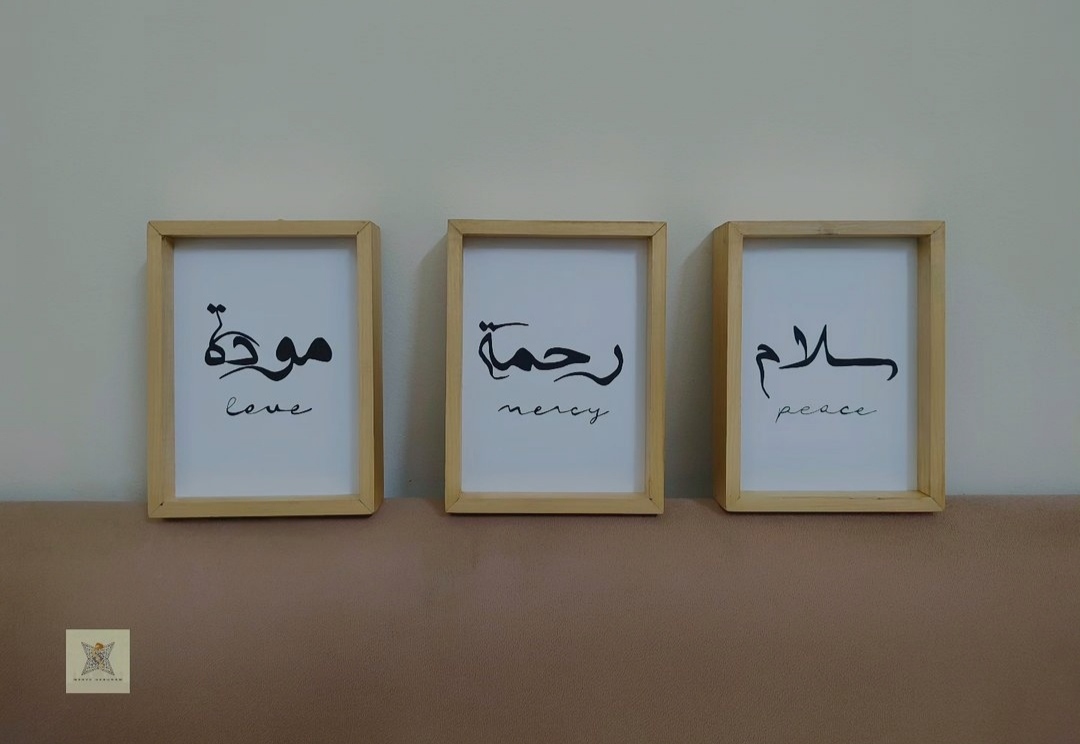 مودة
love
رحمة
mercy
سلام
peace